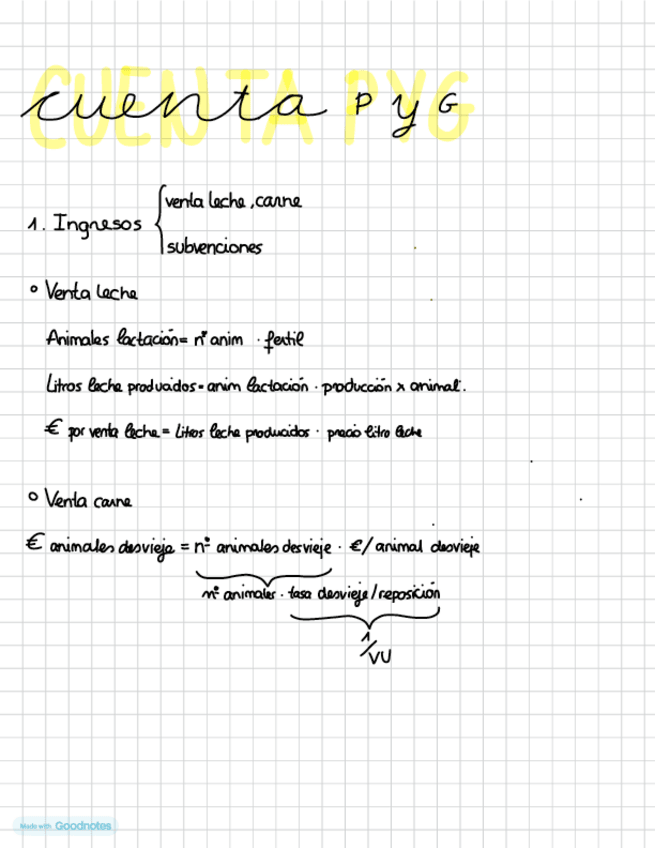 CUENTA PYG
cuenta P y G
1. Ingresos
venta leche, carne
subvenciones
° Venta leche
Animales lactación = nº anim · fertil
Litros leche producidos = anim lactación · producción x animal.
€ por venta leche = Litros leche producidos · precio litro leche
° Venta carne
€ animales desvieje = nº animales desvieje · €/animal desvieje
nº animales · tasa desvieje/reposición
1/VU
Made with Goodnotes